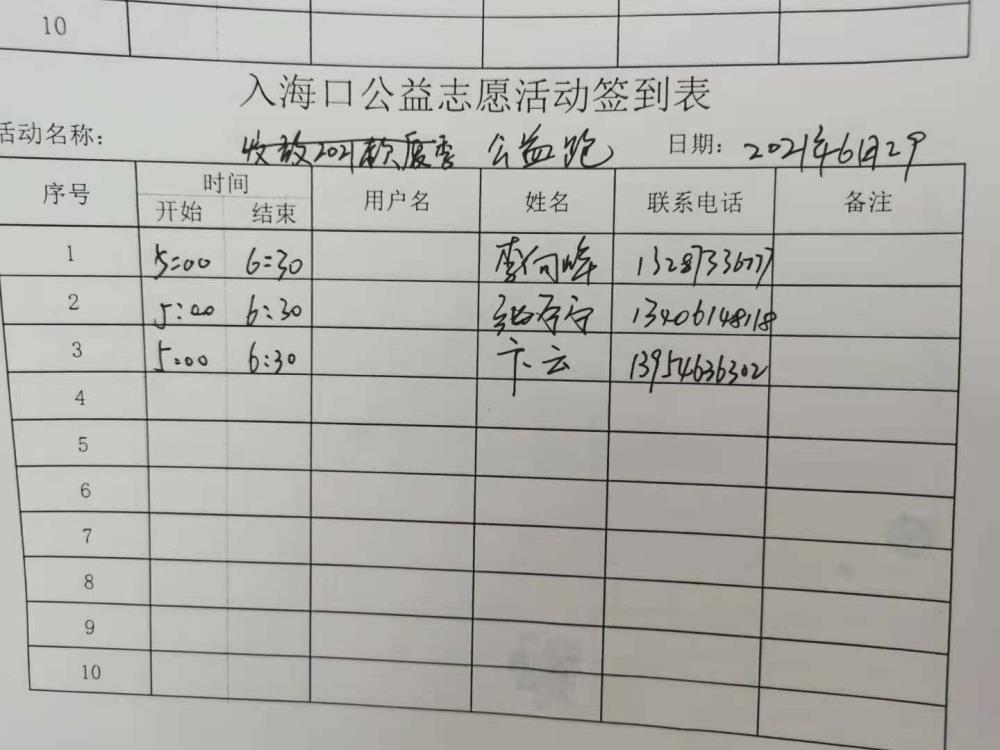 10
入海口公益志愿活动签到表
活动名称: 公益跑 日期: 2021年6月29
序号 时间 用户名 姓名 联系电话 备注
开始 结束
1 5:00 6:30 李向峰
2 5:00 6:30 13406148118
3 5:00 6:30 卞云 13954636302
4
5
6
7
8
9
10